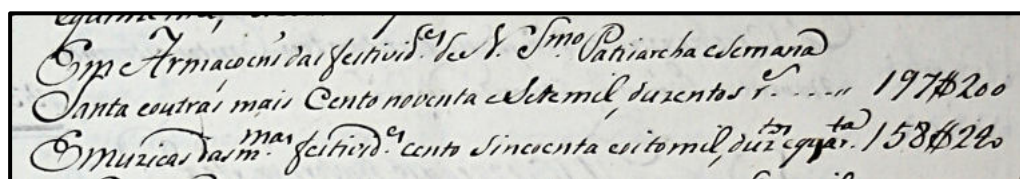 Emp.e Armaçoens das festivid.es de N. S.mo Patriarcha e Semana
Santa e outras mais Cento noventa e Sete mil, duzentos r.s ..... 197$200
E muzicas das m.mas festivid.es cento sincoenta e oito mil, duz.tos e quar.ta 158$240